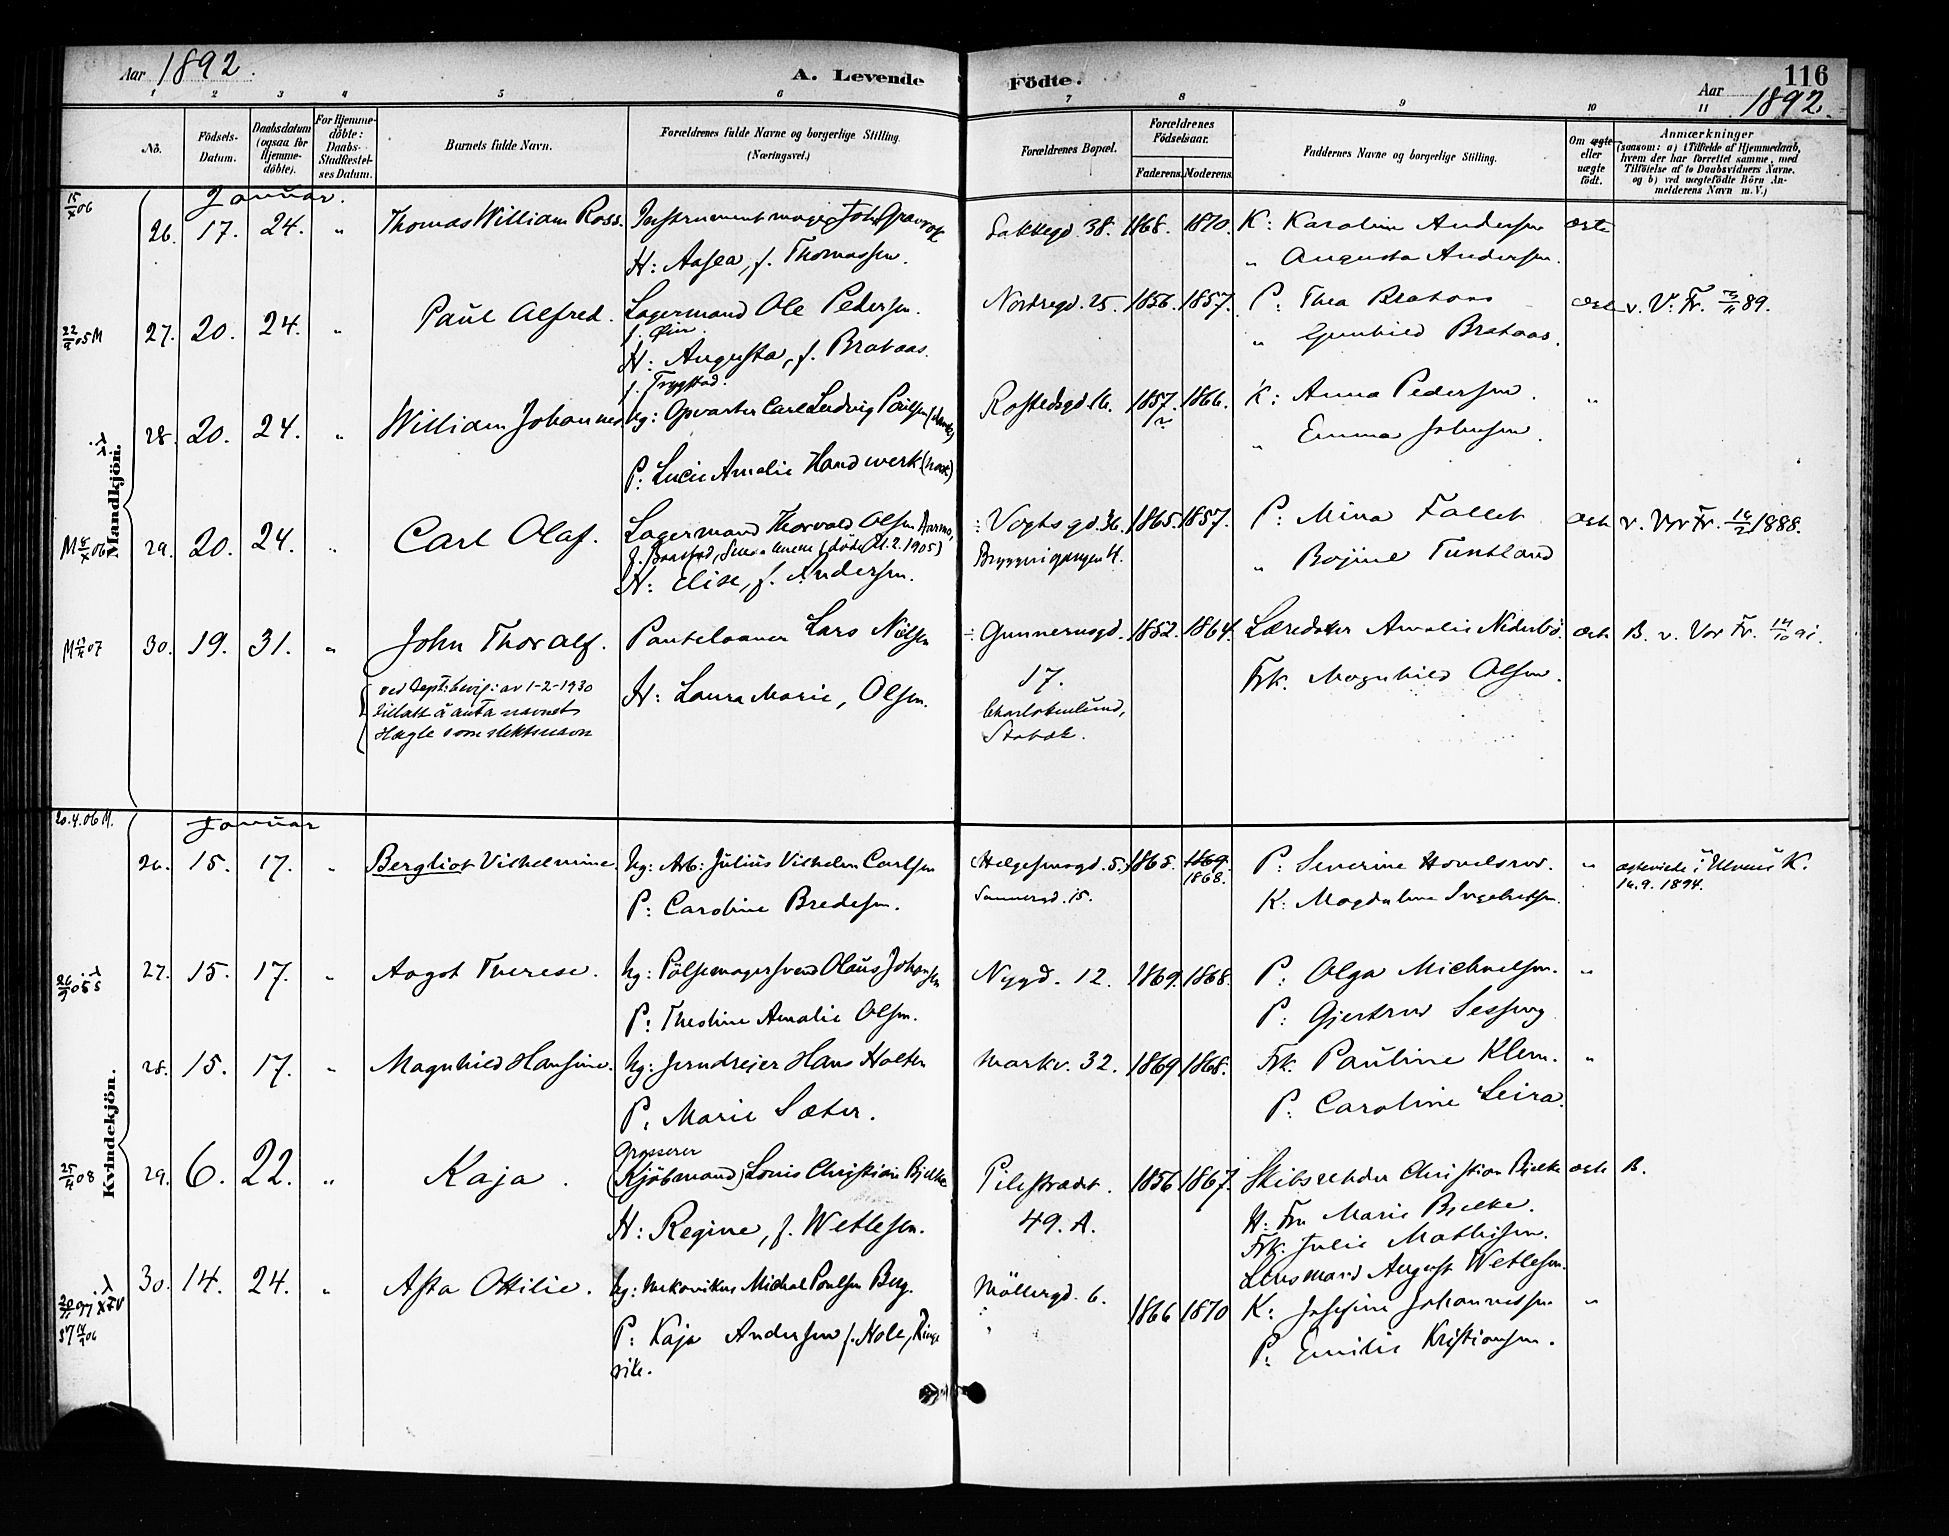 Aar 1892.
A. Levende Födte.
116
Aar 1892.
1 2 3 4 5 6 7 8 9 10 11
No.
Födsels-Datum.
Daabsdatum (ogsaa for Hjemme-döbte).
For Hjemme-döbte: Daabs-Stadfæstel-ses Datum.
Barnets fulde Navn.
Forældrenes fulde Navne og borgerlige Stilling. (Næringsvei.)
Forældrenes Bopæl.
Forældrenes Födselsaar.
Faderens. Moderens.
Faddernes Navne og borgerlige Stilling.
Om ægte eller uægte født.
Anmærkninger (saasom: a) i Tilfælde af Hjemmedaab, hvem der har forrettet samme, med Tilföielse af to Daabsvidners Navne, og b) ved uægtefödte Börn An-melderens Navn m. V.)
Mandkjön.
Januar.
15/X 06
26. 17. 24. " Thomas William Ross. Instrumentmager Joh.
Lakkegd. 38. 1868. 1870. K: Karoline Andersen ægte
H: Aasea, f. Thomassen.
" Augusta Andersen.
22/9 05 M
27. 20. 24. " Paul Alfred. Lagermand Ole Pedersen.
Nordregd. 25. 1856. 1857. P: Thea Brataas ægte v. V. Fr. 89.
H: Augusta, f. Brataas.
f. Trygstad.
" Gunhild Brataas.
28. 20. 24. " William Johannes Ug: Opvarter Carl Ludvig Paulsen
Rostedsgd. 16. 1857. 1866. K: Anna Pedersen. "
" Emma Johnsen.
P: Lucie Amalie Handwerk (norsk)
29. 20. 24. " Carl Olaf. Lagermand Thorvald Olsen Aarmo,
(död 21.2.1905)
H: Elise, f. Andersen.
Vogtsgd. 36. 1865. 1857. P: Mina Fallet ægte v. Vor Fr. 1888.
Bryggerigangen 4. " Bojine Tuntland
30. 19. 31. " John Thoralf. Pantelaaner Lars Nilsen
Gunnerusgd. 1852. 1864. Amalie Nideröi ægte B. v. Vor Fr. 14/10 91.
17.
H: Laura Marie, Olsen.
Frk. Magnhild Olsen.
ved Dept: bevig: av 1-2-1930
tillatt å anta navnet
Hægle som slektsnavn
Charlottenlund,
Stabæk.
Kvindekjön.
20.4.06 M.
Januar
26. 15. 17. " Bergliot Vilhelmine. Ug: Arb: Julius Vilhelm Carlsen
Helgesensgd. 5. 1865. 1869. 1868. P: Severine Hovelsrud. " ægteviede i Ullern K.
16.9.1894.
P: Caroline Bredesen.
Sannergd. 15.
K: Magdalene Ingebretsen.
27. 15. 17. " Aagot Therese. Ug: Pölsemagersvend Olaus Johansen
Nygd. 12. 1869. 1868. P: Olga Michaelsen. "
P: Theoline Amalie Olsen.
P: Gjertrud Sesseng
28. 15. 17. " Magnhild Hansine. Ug: Jerndreier Hans Holten
Markv. 32. 1869 1868. Frk. Pauline Klem. "
P. Marie Sæter.
P: Caroline Leira.
25/4 08
29. 6. 22. " Kaja. Grosserer
(Kjöbmand) Louis Christian Bjelke
Pilestrædet. 1856. 1867. Skibsrehder Christian Bjelke ægte B.
49. A.
H: Regine, f. Wetlesen.
H: Fru Marie Bjelke.
Frk. Julie Mathisen.
Lensmand August Wetlesen.
30. 14. 24. " Asta Otilie. Ug: Mekanikus Michal Paulsen Berg.
Möllergd. 6. 1866 1870 K: Josefine Johannessen "
P: Kaja Andersen f. Hole, Ringe
rike.
P: Emilie Kristiansen.